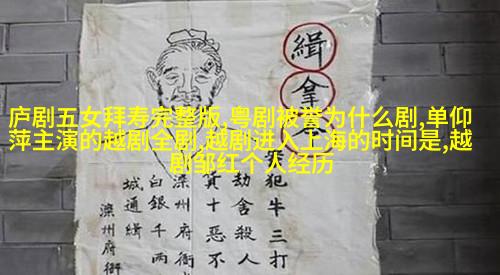 庐剧五女拜寿完整版,粤剧被誉为什么剧,单仰
萍主演的越剧全剧,越剧进入上海的时间是,越
剧邹红个人经历
緝拿
犯牛三打
劫舍殺人
十惡不
滦州府衙
白銀千两
城通緝
滦州府衙